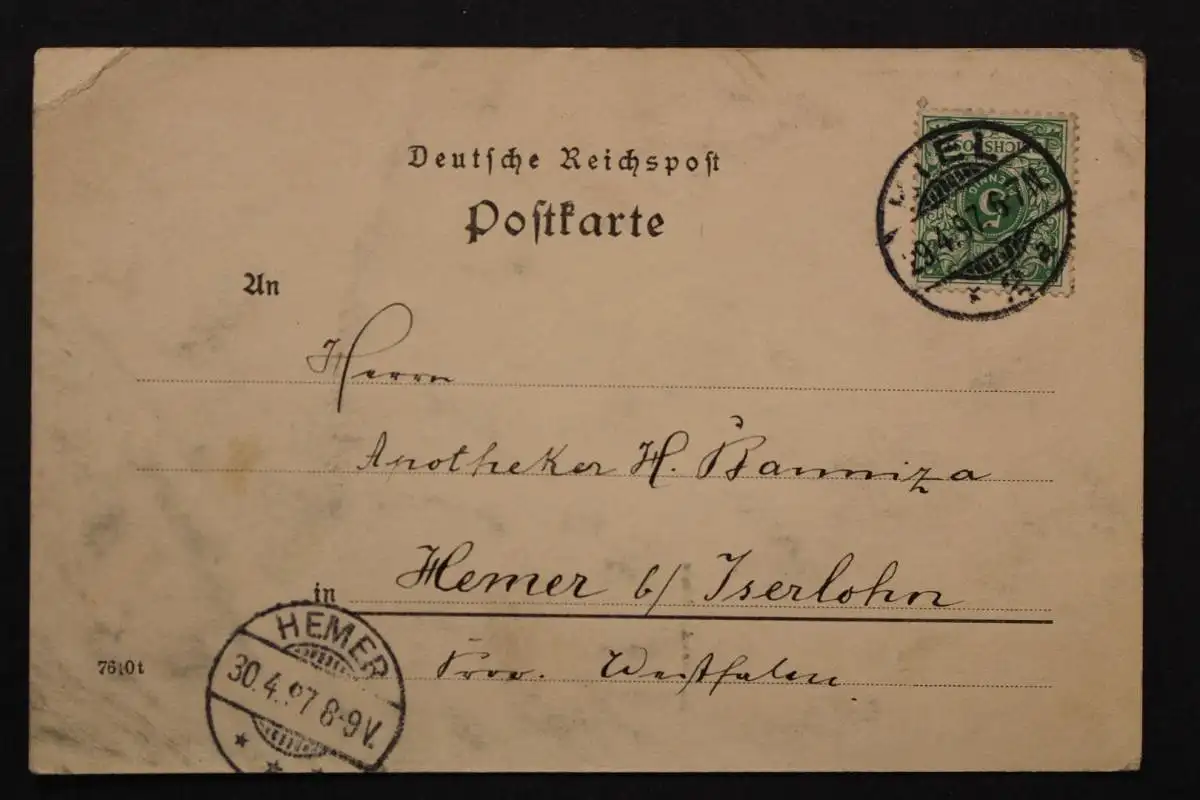 Deutsche Reichspost
Postkarte
KIEL
29.4.97. 6-7N.
a.
REICHSPOST
PFENNIG
5
An
Herrn
Apotheker H. Banniza
in Hemer b/ Iserlohn
Prov. Westfalen
HEMER
30.4.97 8-9V.
7640t